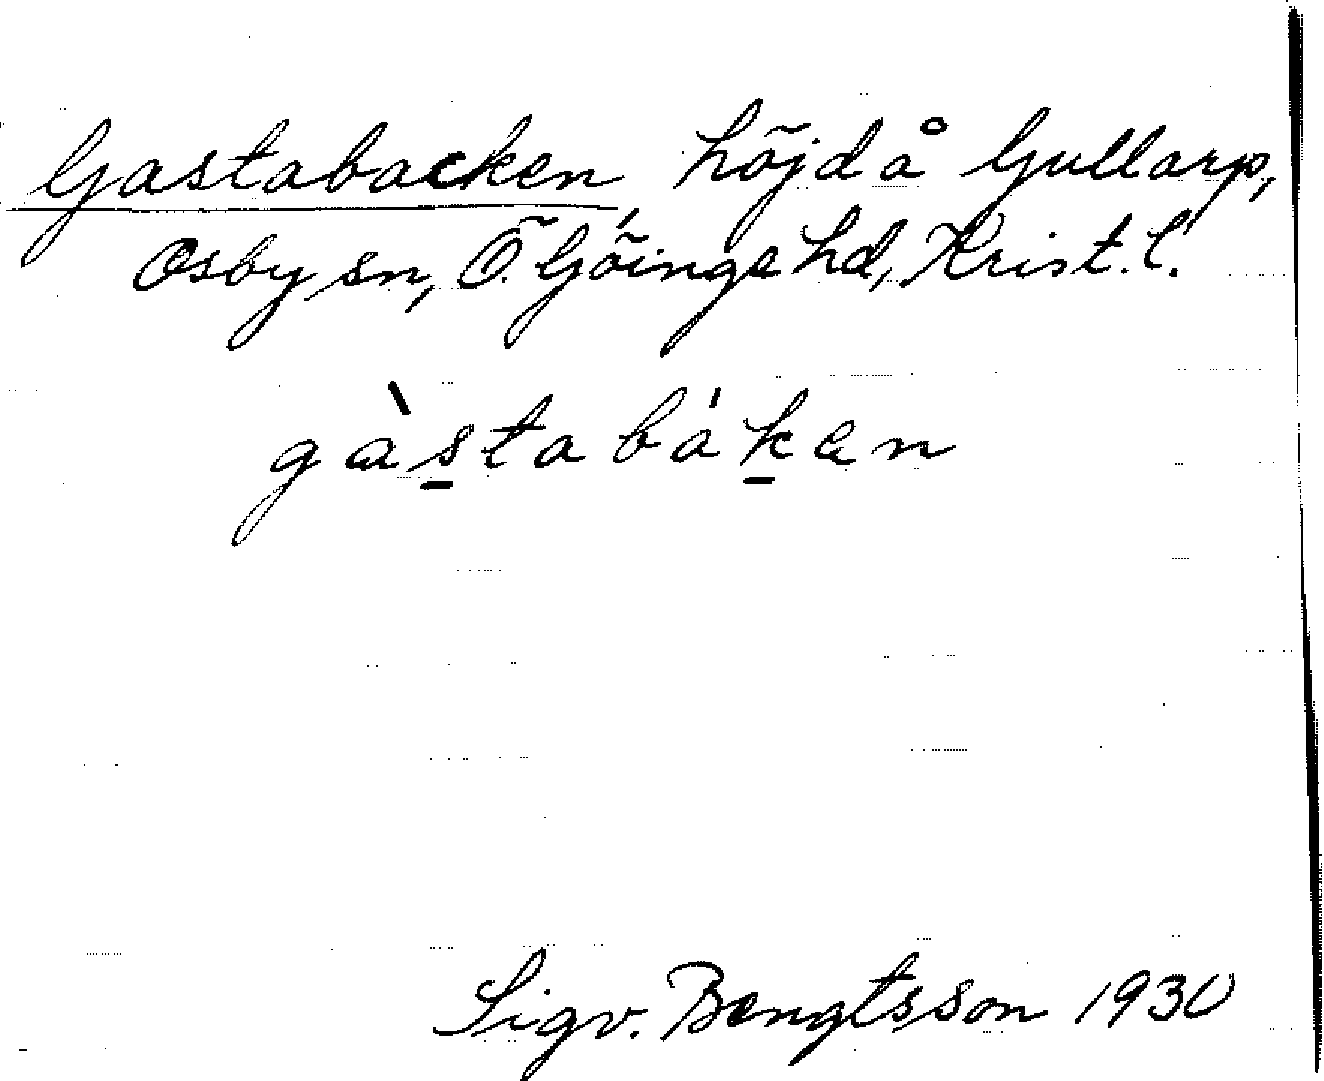 Gastabacken höjd å Gullarp,
Osby sn, Ö. Göinge hd, Krist. l.
gàs̲tabák̲en
Sigv. Bengtsson 1930